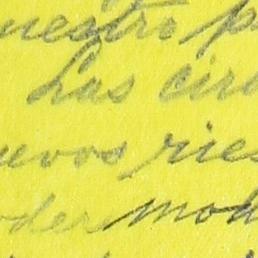 uestro p
Las cir
uevos ries
oder mon